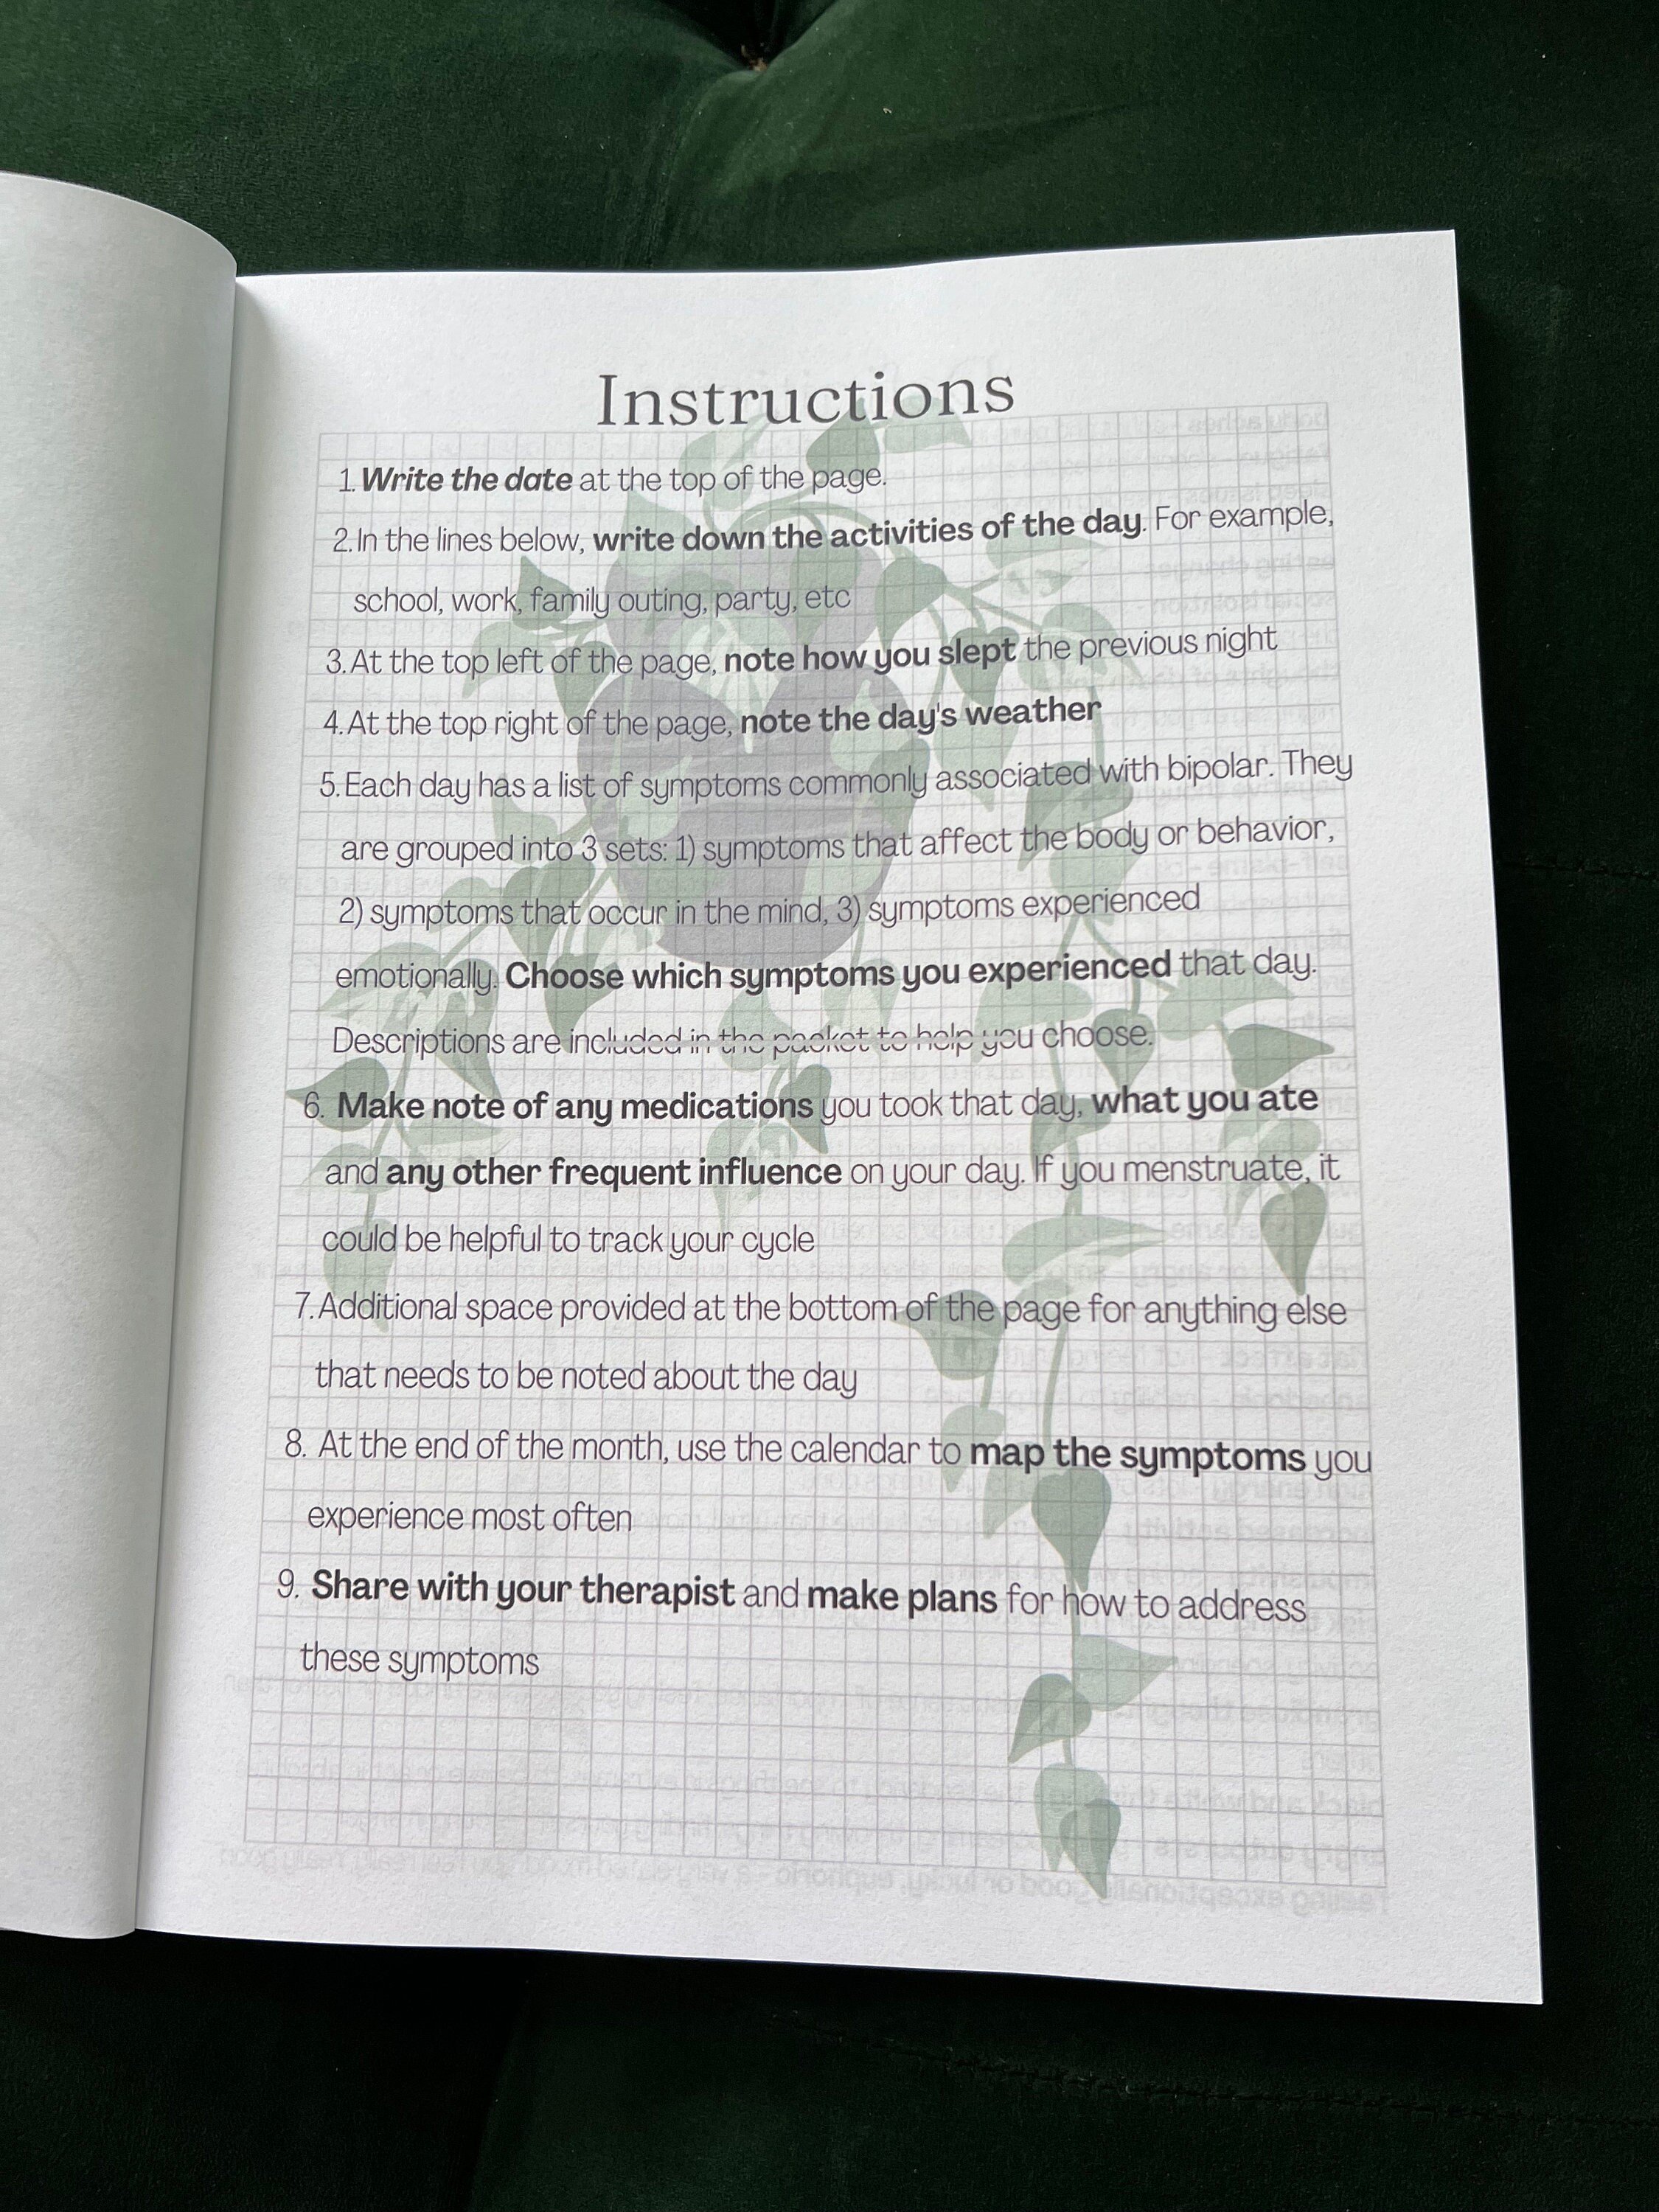 Instructions
1. Write the date at the top of the page.
2. In the lines below, write down the activities of the day. For example,
school, work, family outing, party, etc
3. At the top left of the page, note how you slept the previous night
4. At the top right of the page, note the day's weather
5. Each day has a list of symptoms commonly associated with bipolar. They
are grouped into 3 sets: 1) symptoms that affect the body or behavior,
2) symptoms that occur in the mind, 3) symptoms experienced
emotionally. Choose which symptoms you experienced that day.
Descriptions are included in the packet to help you choose.
6. Make note of any medications you took that day, what you ate
and any other frequent influence on your day. If you menstruate, it
could be helpful to track your cycle
7. Additional space provided at the bottom of the page for anything else
that needs to be noted about the day
8. At the end of the month, use the calendar to map the symptoms you
experience most often
9. Share with your therapist and make plans for how to address
these symptoms